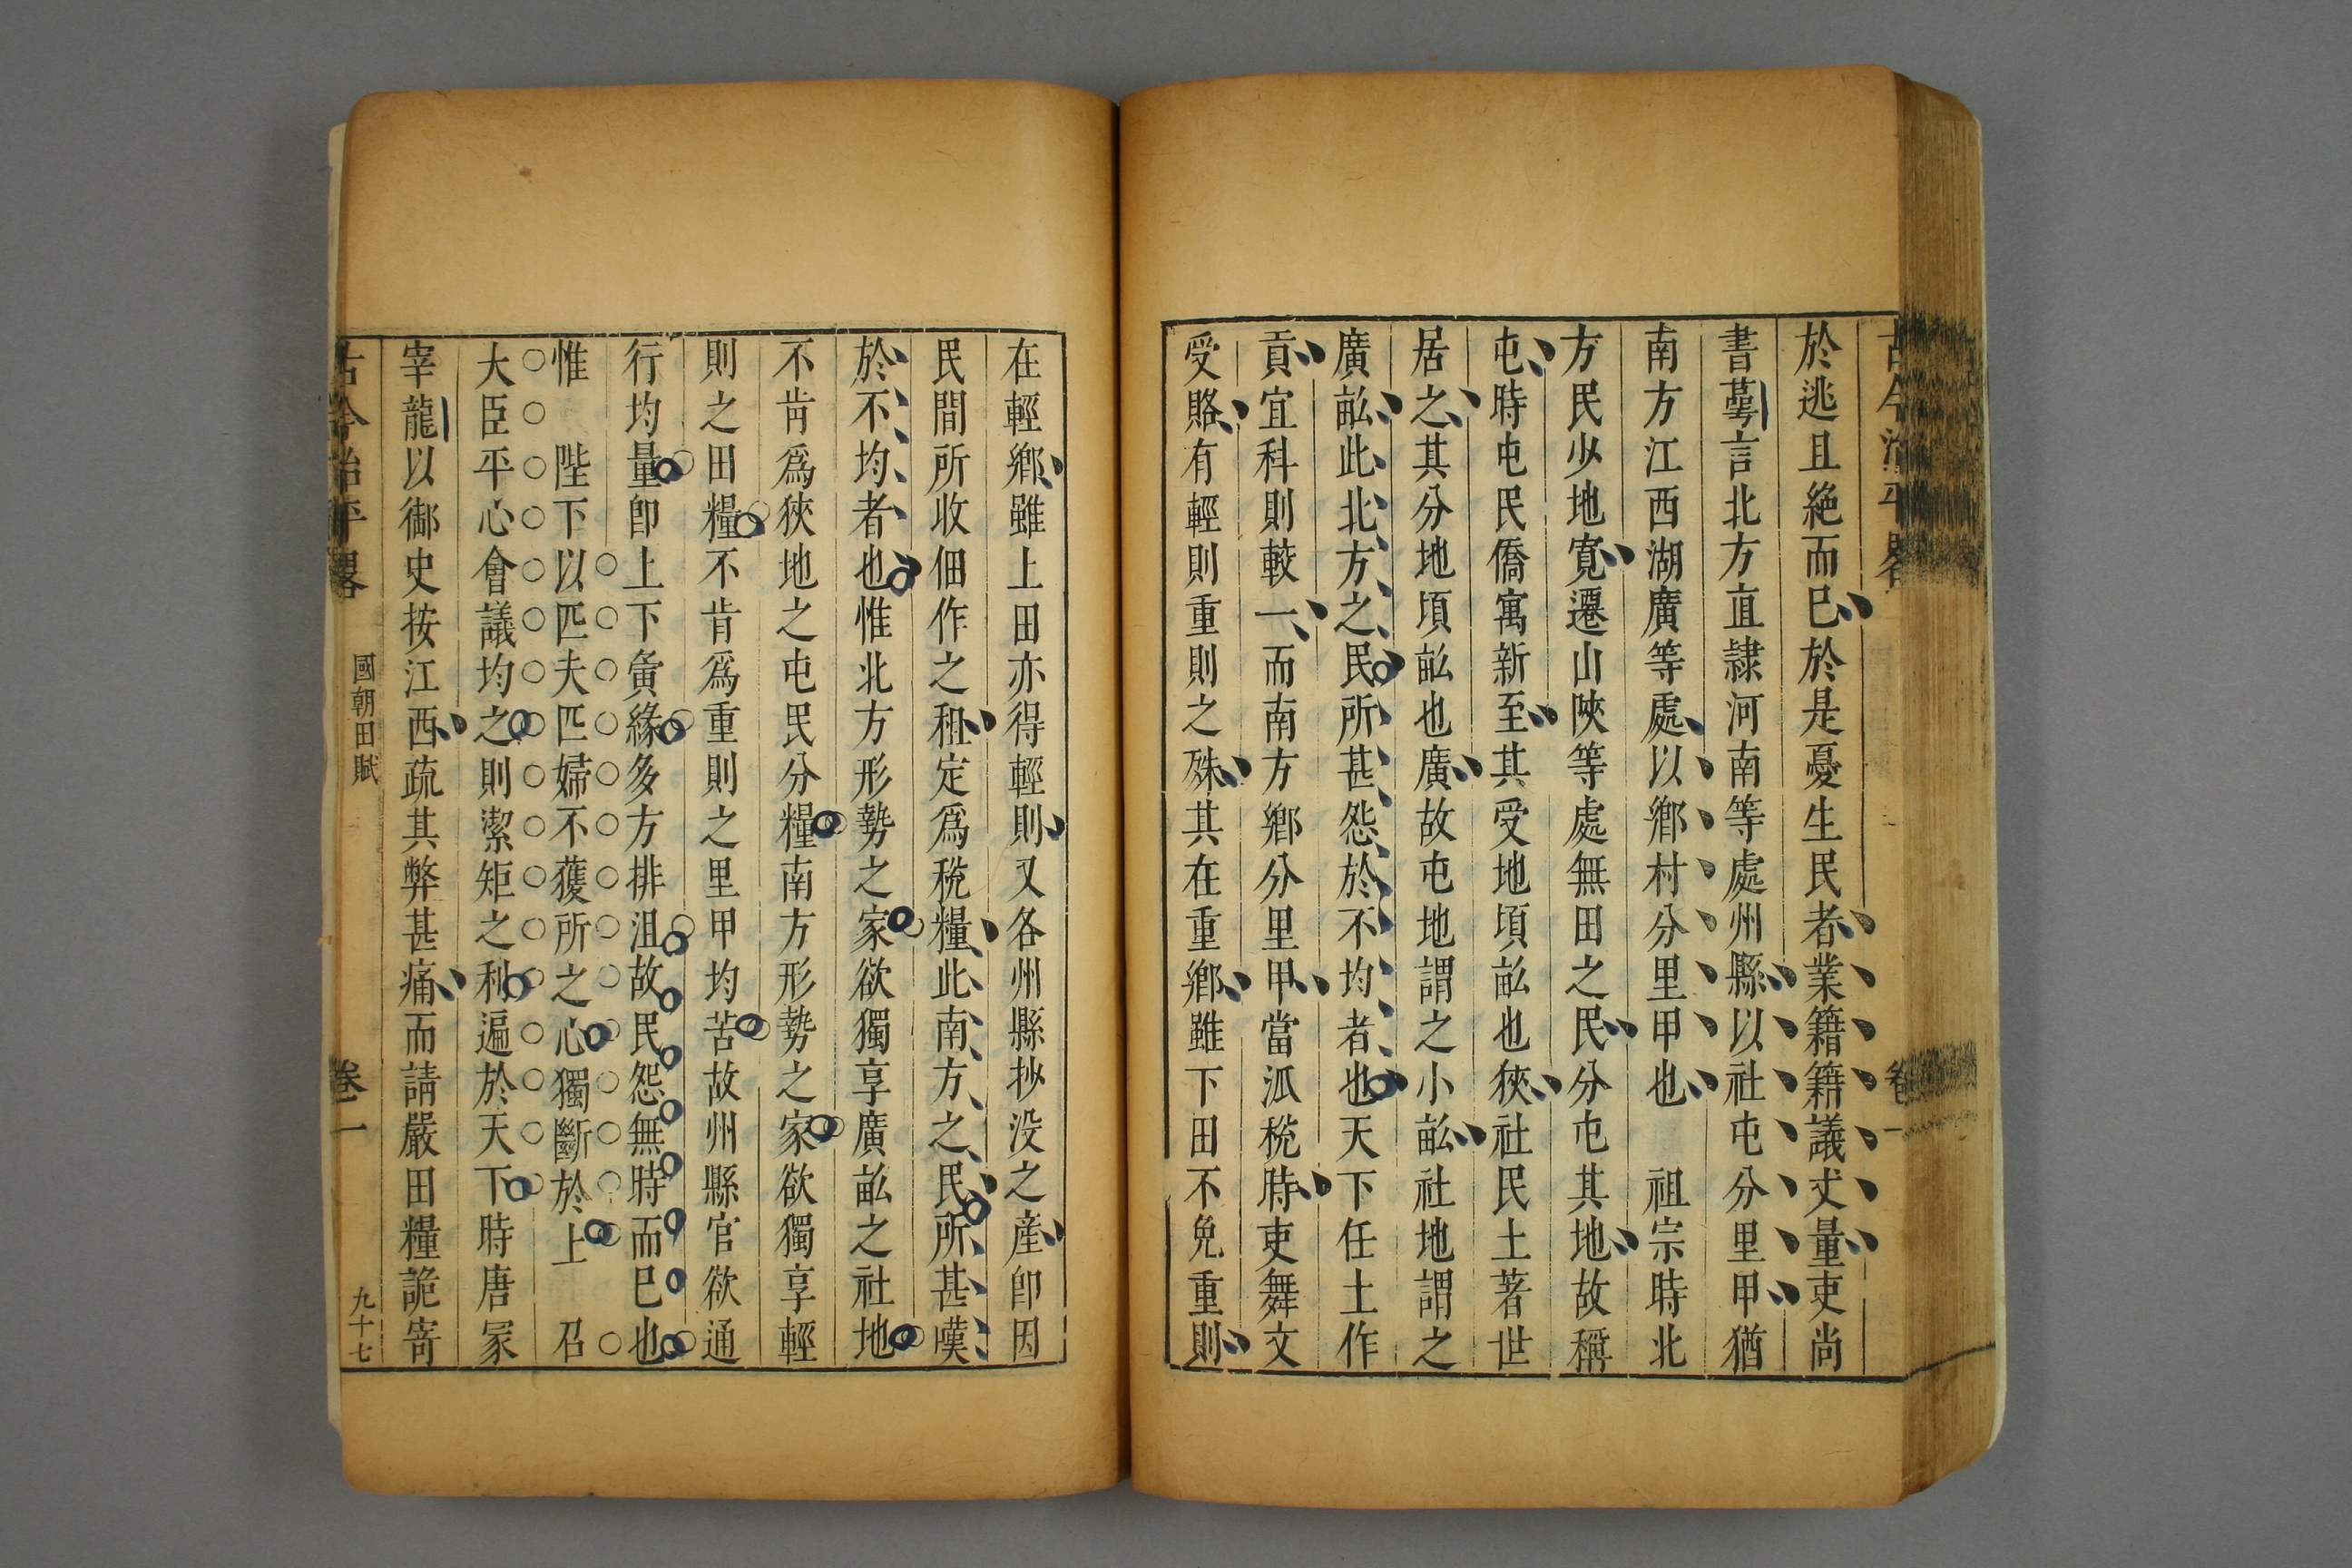 古今治平畧
卷一
於逃且絶而已於是憂生民者業籍籍議丈量吏尚
書蕚言北方直隷河南等處州縣以社屯分里甲猶
南方江西湖廣等處以鄉村分里甲也　祖宗時北
方民少地寛遷山陝等處無田之民分屯其地故稱
屯時屯民僑寓新至其受地頃畝也狹社民土著世
居之其分地頃畝也廣故屯地謂之小畝社地謂之
廣畝此北方之民所甚怨於不均者也天下任土作
貢宜科則較一而南方鄉分里甲當派稅時吏舞文
受賂有輕則重則之殊其在重鄉雖下田不免重則
在輕鄉雖上田亦得輕則又各州縣抄沒之產卽因
民間所收佃作之租定爲稅糧此南方之民所甚嘆
於不均者也惟北方形勢之家欲獨享廣畝之社地
不肯爲狹地之屯民分糧南方形勢之家欲獨享輕
則之田糧不肯爲重則之里甲均苦故州縣官欲通
行均量卽上下夤緣多方排沮故民怨無時而已也
惟　陛下以匹夫匹婦不獲所之心獨斷於上　召
大臣平心會議均之則潔矩之利遍於天下時唐冢
宰龍以御史按江西疏其弊甚痛而請嚴田糧詭寄
古今治平畧
國朝田賦
卷一
九十七